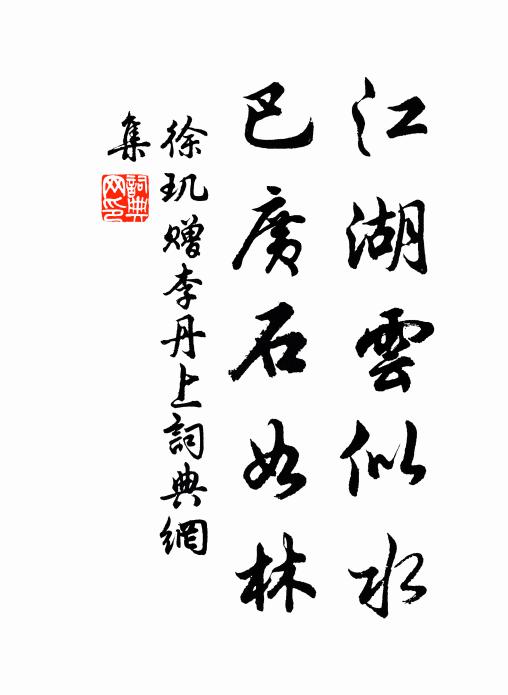 江湖雲似水
巴廣石如林
徐玑赠李丹士詞典網
集
詞典
网印